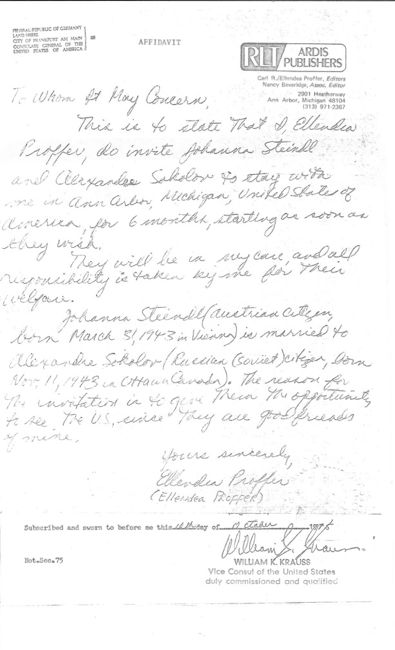 FEDERAL REPUBLIC OF GERMANY
LAND HESSE
CITY OF FRANKFURT AM MAIN
CONSULATE GENERAL OF THE
UNITED STATES OF AMERICA
SS
AFFIDAVIT
RLT ARDIS
PUBLISHERS
Carl R./Ellendea Proffer, Editors
Nancy Beveridge, Assoc. Editor
2901 Heatherway
Ann Arbor, Michigan 48104
(313) 971-2367
To Whom It May Concern,
This is to state that I, Ellendea
Proffer, do invite Johanna Steindl
and Alexandre Sokolov to stay with
me in Ann Arbor, Michigan, United States of
America, for 6 months, starting as soon as
they wish.
They will be in my care, and all
responsibility is taken by me for their
welfare.
Johanna Steindl (Austrian citizen,
born March 31, 1943 in Vienna) is married to
Alexandre Sokolov (Russian (Soviet) citizen, born
Nov. 11, 1943 in Ottawa Canada). The reason for
the invitation is to give them the opportunity
to see the U.S., since they are good friends
of mine.
Yours sincerely,
Ellendea Proffer
(Ellendea PROFFER)
Subscribed and sworn to before me this day of October
William K. Krauss
Not.Sec.75
WILLIAM K. KRAUSS
Vice Consul of the United States
duly commissioned and qualified